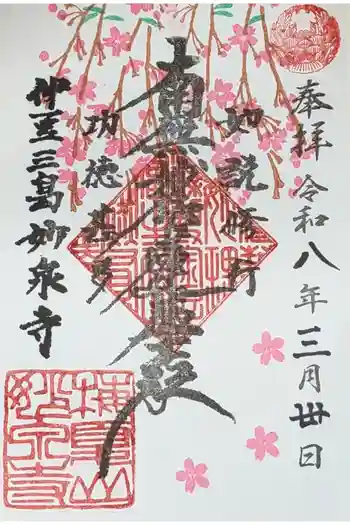 奉拝 令和八年三月丗日
如説修行
南無妙法蓮華経
功徳甚多
伊豆三島妙泉寺